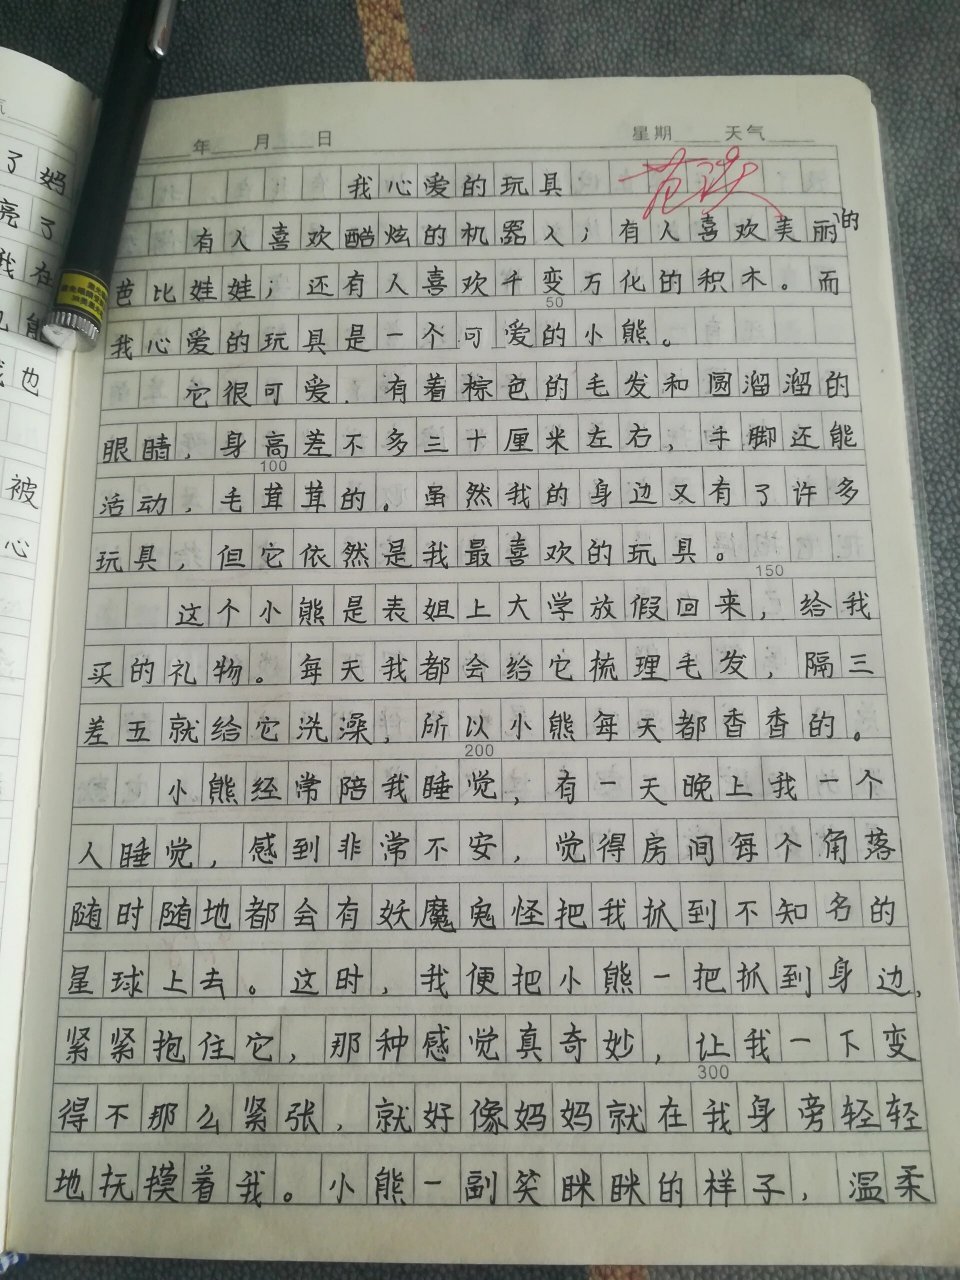 年 月 日 星期 天气
我心爱的玩具
有人喜欢酷炫的机器人；有人喜欢美丽的
芭比娃娃；还有人喜欢千变万化的积木。而
50
我心爱的玩具是一个可爱的小熊。
它很可爱．有着棕色的毛发和圆溜溜的
眼睛，身高差不多三十厘米左右，手脚还能
100
活动，毛茸茸的。虽然我的身边又有了许多
玩具，但它依然是我最喜欢的玩具。
150
这个小熊是表姐上大学放假回来，给我
买的礼物。每天我都会给它梳理毛发，隔三
差五就给它洗澡，所以小熊每天都香香的。
200
小熊经常陪我睡觉，有一天晚上我一个
人睡觉，感到非常不安，觉得房间每个角落
随时随地都会有妖魔鬼怪把我抓到不知名的
星球上去。这时，我便把小熊一把抓到身边，
紧紧抱住它，那种感觉真奇妙，让我一下变
300
得不那么紧张，就好像妈妈就在我身旁轻轻
地抚摸着我。小熊一副笑眯眯的样子，温柔
了妈
亮了
我在
也
被
心